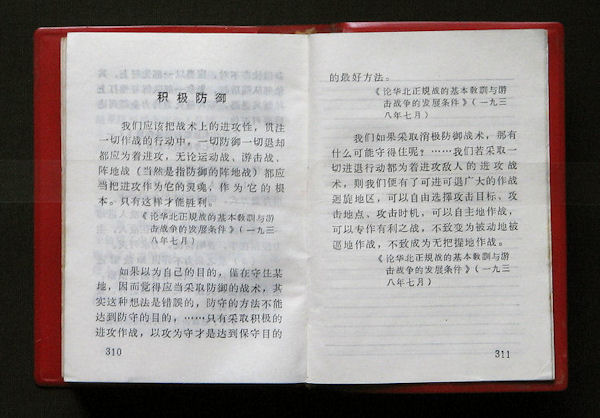 积极防御
我们应该把战术上的进攻性，贯注
一切作战的行动中，一切防御一切退却
都应为着进攻，无论运动战、游击战、
阵地战（当然是指防御的阵地战）都应
当把进攻作为它的灵魂，作为它的根
本。只有这样才能胜利。
《论华北正规战的基本教训与游
击战争的发展条件》（一九三
八年七月）
如果以为自己的目的，仅在守住某
地，因而觉得应当采取防御的战术，其
实这种想法是错误的，防守的方法不能
达到防守的目的，……只有采取积极的
进攻作战，以攻为守才是达到保守目的
310
的最好方法。
《论华北正规战的基本教训与游
击战争的发展条件》（一九三
八年七月）
我们如果采取消极防御战术，那有
什么可能守得住呢？……我们若采取一
切进退行动都为着进攻敌人的进攻战
术，则我们便有了可进可退广大的作战
迴旋地区，可以自由选择攻击目标、攻
击地点、攻击时机，可以自主地作战，
可以专作有利之战，不致变为被动地被
逼地作战，不致成为无把握地作战。
《论华北正规战的基本教训与游
击战争的发展条件》（一九三
八年七月）
311